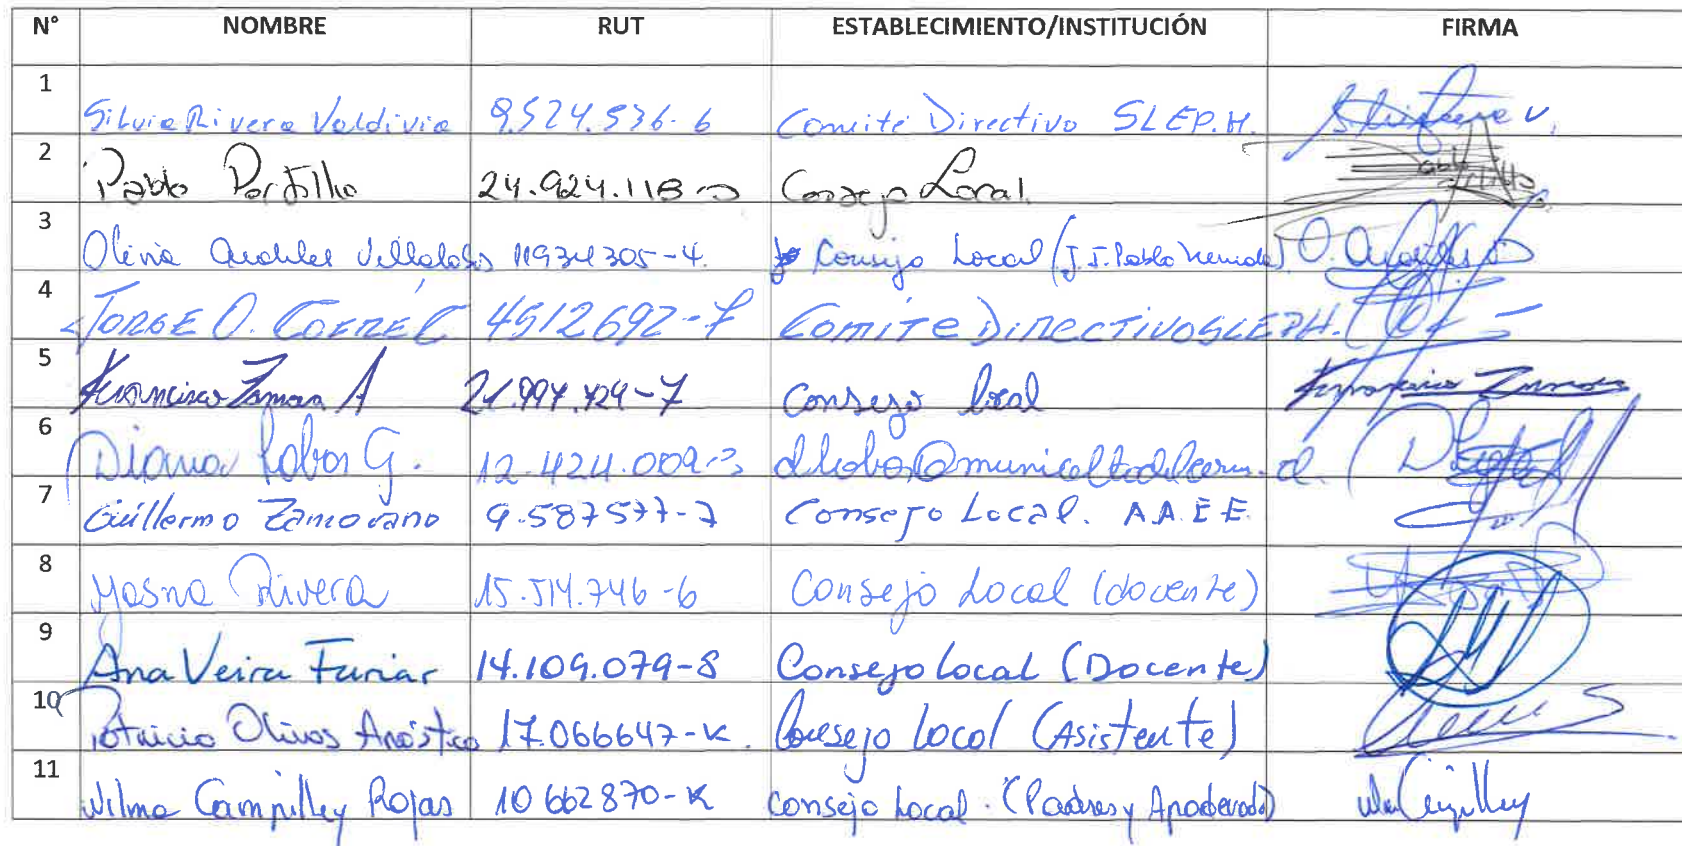 N° NOMBRE RUT ESTABLECIMIENTO/INSTITUCIÓN FIRMA
1 Silvia Rivera Valdivia 9.524.536-6 Comité Directivo SLEP.H.
2 Pablo Portillo 24.924.118-0 Consejo Local
3 Olivia 11934305-4. Consejo Local (J.I. Pablo Neruda)
4 JORGE O. 4912692-7 COMITE DIRECTIVO SLEPH.
5 Francisco Zamora A 21.994.424-7 Consejo local
6 Diana Lobos G. 12.424.009-3
7 Guillermo Zamorano 9.587577-7 Consejo Local. A.A.E.E.
8 Yasna Rivera 15.514.746-6 Consejo Local (docente)
9 Ana Veira Furiar 14.109.079-8 Consejo local (Docente)
10 Patricio Olivos Aróstica 17.066647-K Consejo local (Asistente)
11 Wilma Campilley Rojas 10662870-K Consejo Local. (Padres y Apoderado)